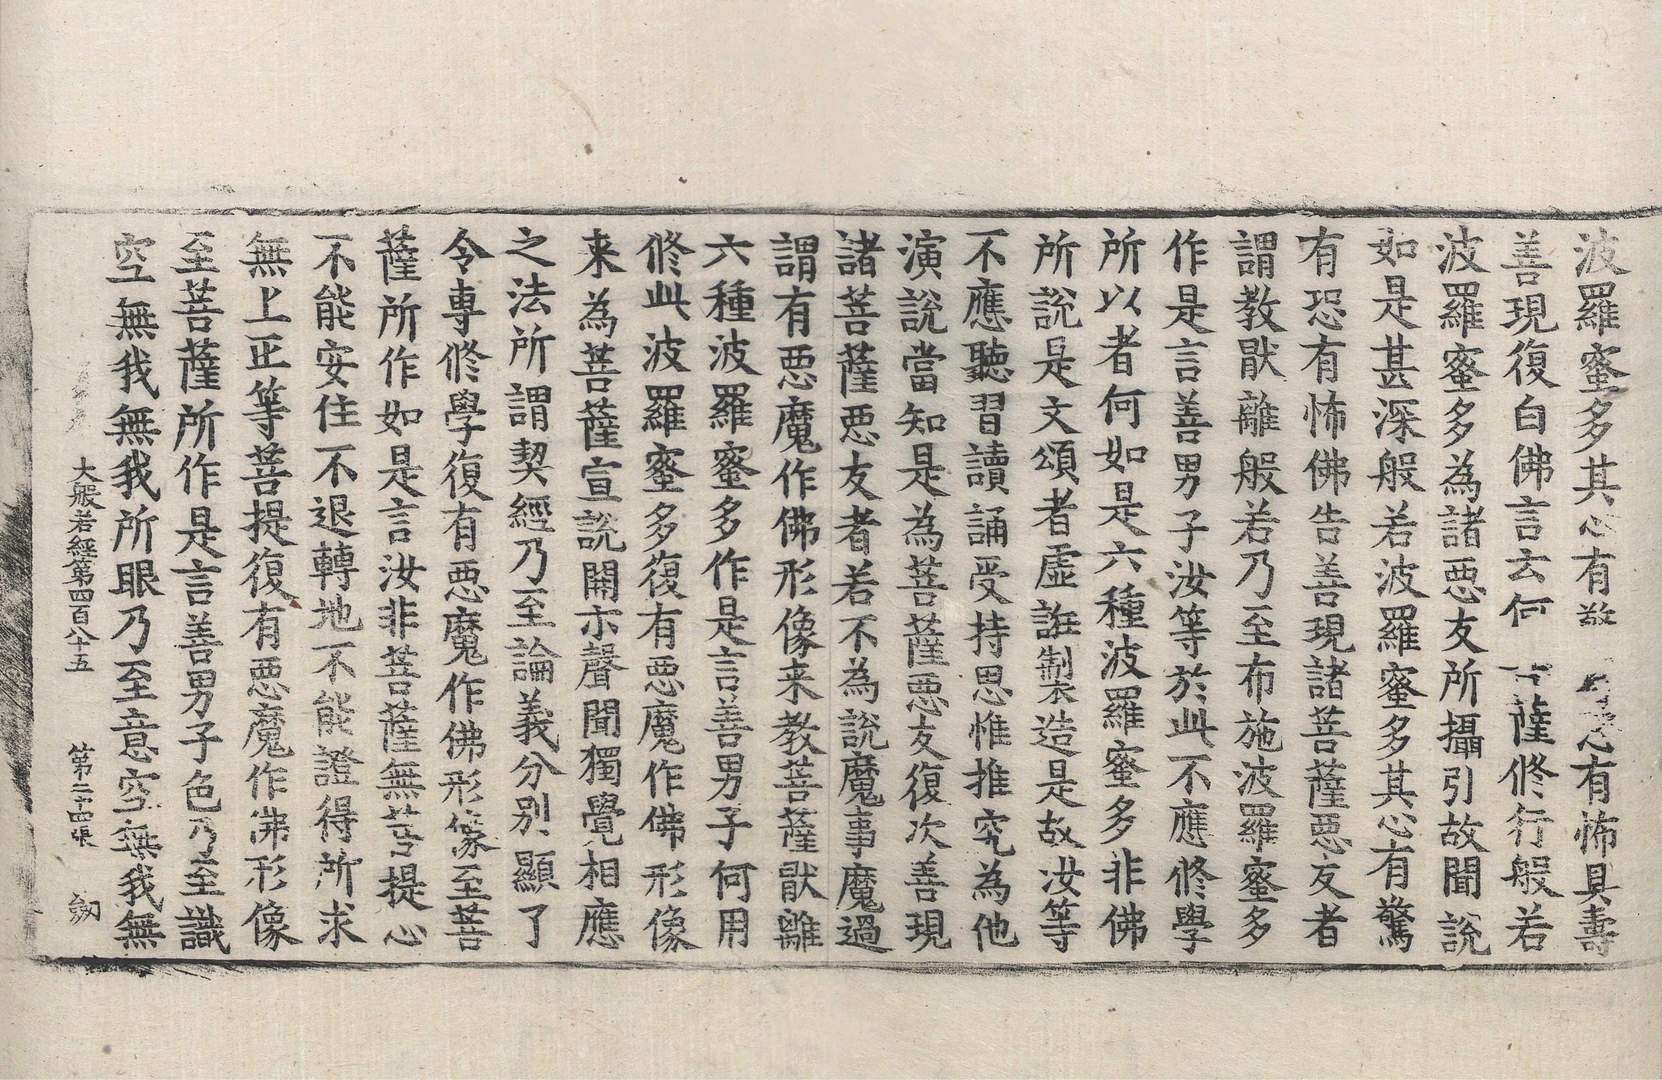 波羅蜜多其心有驚有恐有怖具壽
善現復白佛言云何菩薩修行般若
波羅蜜多為諸惡友所攝引故聞說
如是甚深般若波羅蜜多其心有驚
有恐有怖佛告善現諸菩薩惡友者
謂教猒離般若乃至布施波羅蜜多
作是言善男子汝等於此不應修學
所以者何如是六種波羅蜜多非佛
所說是文頌者虛誑製造是故汝等
不應聽習讀誦受持思惟推究為他
演說當知是為菩薩惡友復次善現
諸菩薩惡友者若不為說魔事魔過
謂有惡魔作佛形像来教菩薩猒離
六種波羅蜜多作是言善男子何用
修此波羅蜜多復有惡魔作佛形像
来為菩薩宣說開示聲聞獨覺相應
之法所謂契經乃至論義分別顯了
令專修學復有惡魔作佛形像至菩
薩所作如是言汝非菩薩無菩提心
不能安住不退轉地不能證得所求
無上正等菩提復有惡魔作佛形像
至菩薩所作是言善男子色乃至識
空無我無我所眼乃至意空無我無
大般若經第四百八十五 第二十四張 劒